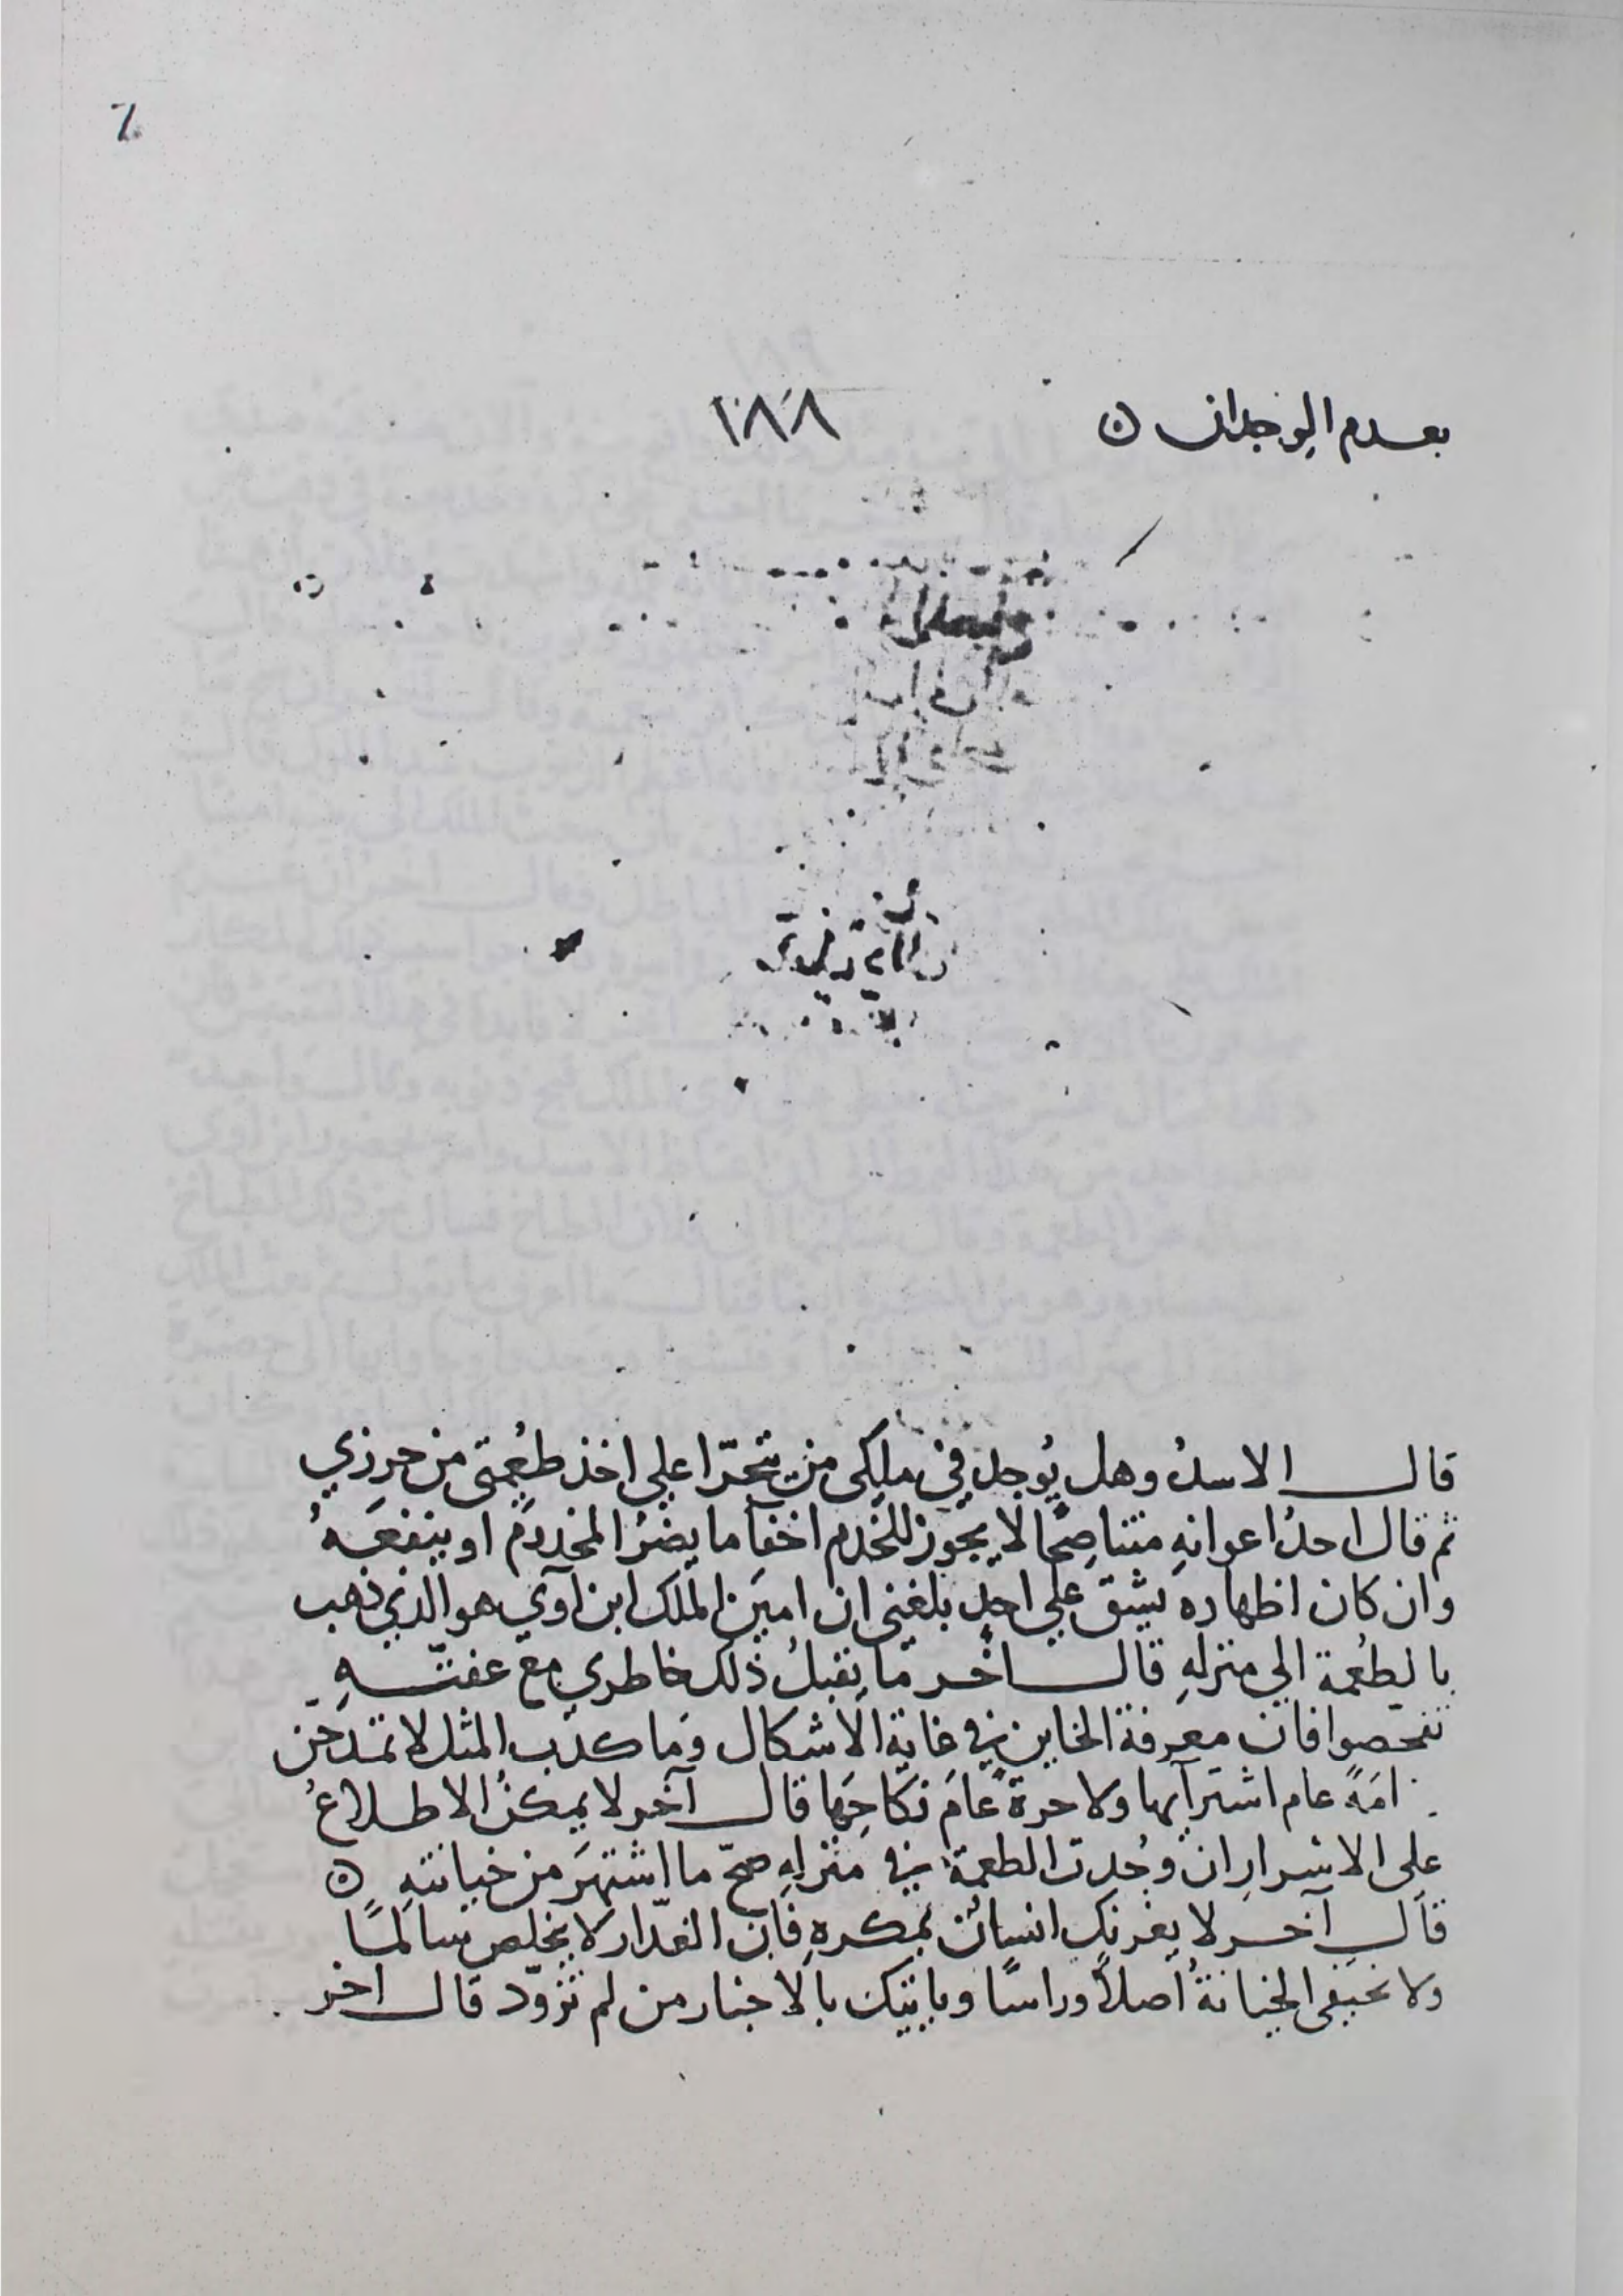 بعدم الوجدان ن
١٨٨
قال الاسدُ وهل يُوجد في ملكى من يتجرّا علي اخذ طُعمتى من حرزي
ثم قال احدُ اعوانهِ متناصحًا لا يجوز للخدم اخفآ ما يضرُ المخدومَ او ينفعهُ
وان كان اظهاره يشق علي احدٍ بلغني ان امين الملك ابن آوي هو الذي ذهب
بالطُعمة الي منزلهِ قال اخر ما يقبلُ ذلك خاطري مع عفتّهِ
تفحّصوا فان معرفة الخاين في غاية الاشكال وما كذب المثل لا تمدحن
امَةً عام اشترآيها ولا حرةً عامَ نكاحِها قال آخر لا يمكنُ الاطلاعُ
على الاسرار ان وُجدت الطعمة في منزلهِ صحّ ما اشتهرَ من خيانتهِ ن
قال آخر لا يغرنك انسانٌ بمكرهِ فان الغدّار لا يخلص سالمًا
ولا تخفى الخيانةُ اصلاً وراسًا وياتيك بالاخبار من لم تزوّد قال اخر